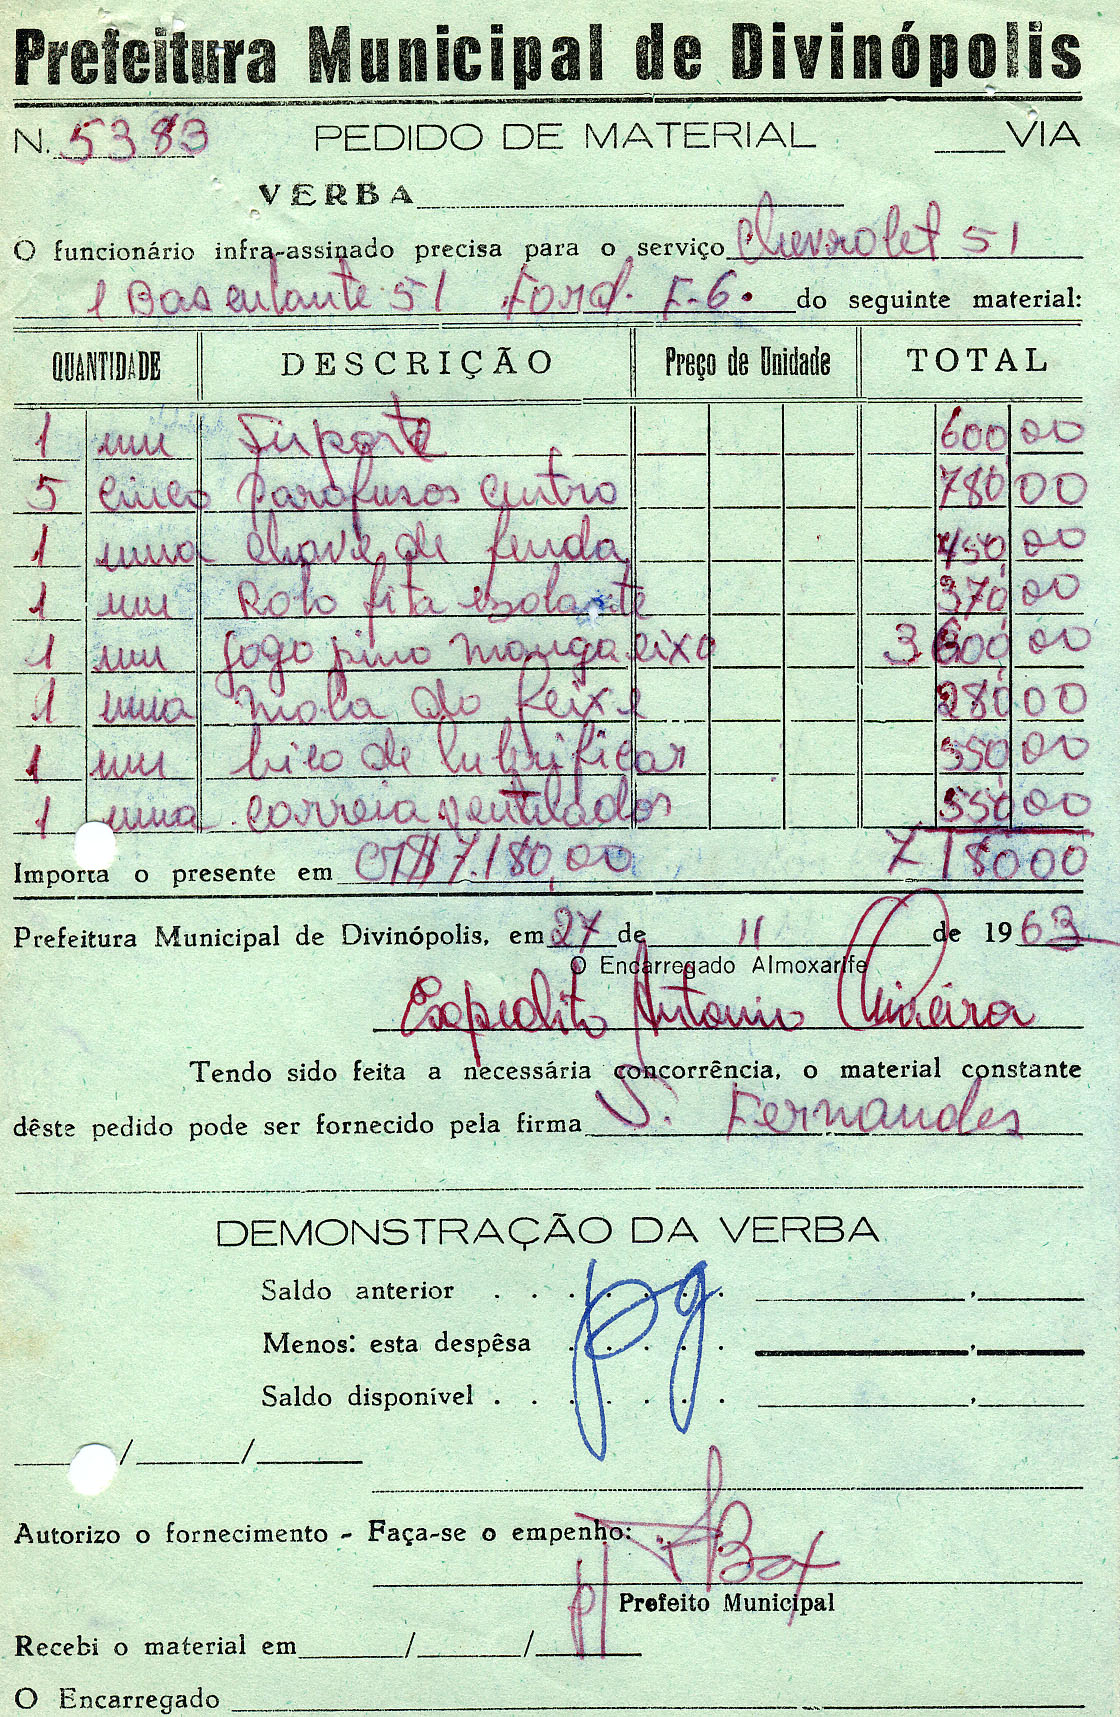 Prefeitura Municipal de Divinópolis
N. 5383 PEDIDO DE MATERIAL ____VIA
VERBA
O funcionário infra-assinado precisa para o serviço Chevrolet 51
1 Basculante 51 Ford. F-6. do seguinte material:
QUANTIDADE DESCRIÇÃO Preço de Unidade TOTAL
1 um Suporte 600,00
5 cinco parafusos centro 780,00
1 uma chave de fenda 450,00
1 um Rolo fita izolante 370,00
1 um jogo pino manga eixo 3600,00
1 uma mola do feixe 280,00
1 um bico de lubrificar 550,00
1 uma correia ventilador 550,00
Importa o presente em CR$ 7.180,00 718000
Prefeitura Municipal de Divinópolis, em 27 de 11 de 1963
O Encarregado Almoxarife
Expedito Antonio Oliveira
Tendo sido feita a necessária concorrência, o material constante
dêste pedido pode ser fornecido pela firma S. Fernandes
DEMONSTRAÇÃO DA VERBA
Saldo anterior . . . . . . .
Menos: esta despêsa . . . . .
Saldo disponível . . . . . . .
pg
____/____/____
Autorizo o fornecimento - Faça-se o empenho:
p/ Prefeito Municipal
Recebi o material em____/____/____
O Encarregado